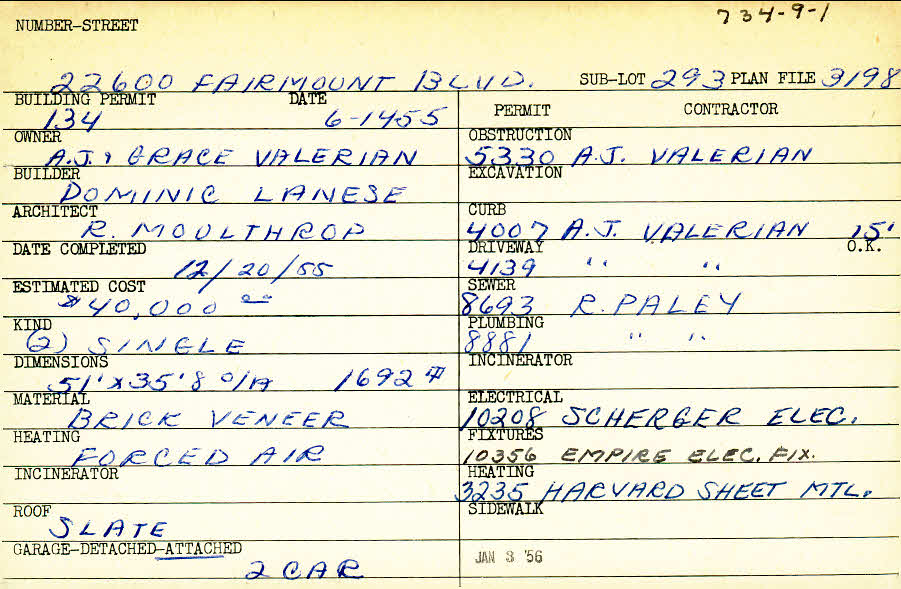 734-9-1
NUMBER-STREET
22600 FAIRMOUNT BLVD. SUB-LOT 293 PLAN FILE 3198
BUILDING PERMIT DATE
134 6-1455
OWNER
A.J. & GRACE VALERIAN
BUILDER
DOMINIC LANESE
ARCHITECT
R. MOULTHROP
DATE COMPLETED
12/20/55
ESTIMATED COST
$40,000 00
KIND
(2) SINGLE
DIMENSIONS
51'x35'8 O/A 1692 #
MATERIAL
BRICK VENEER
HEATING
FORCED AIR
INCINERATOR
ROOF
SLATE
GARAGE-DETACHED-ATTACHED
2 CAR
PERMIT CONTRACTOR
OBSTRUCTION
5330 A.J. VALERIAN
EXCAVATION
CURB
4007 A.J. VALERIAN 15'
DRIVEWAY O.K.
4139 " "
SEWER
8693 R. PALEY
PLUMBING
8881 " "
INCINERATOR
ELECTRICAL
10208 SCHERGER ELEC.
FIXTURES
10356 EMPIRE ELEC. FIX.
HEATING
3235 HARVARD SHEET MTL.
SIDEWALK
JAN 3 '56